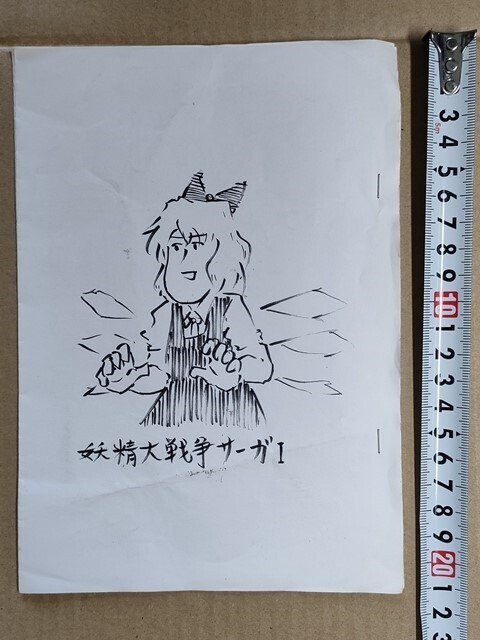 妖精大戦争サーガI
5m
3
4
5
6
7
8
9
10
1
2
3
4
5
6
7
8
9
20
1
2
3